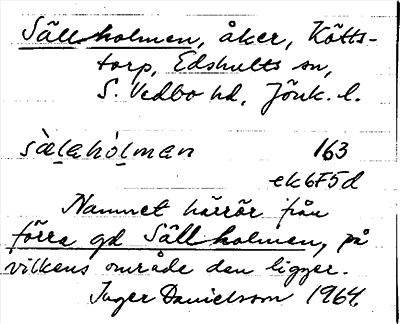 Sällholmen, åker, Kötts-
torp, Edshults sn,
S. Vedbo hd, Jönk. l.
sàlahólman 163
ek6F5d
Namnet härrör från
förra gd Sällholmen, på
vilkens område den ligger.
Inger Danielsson 1964.